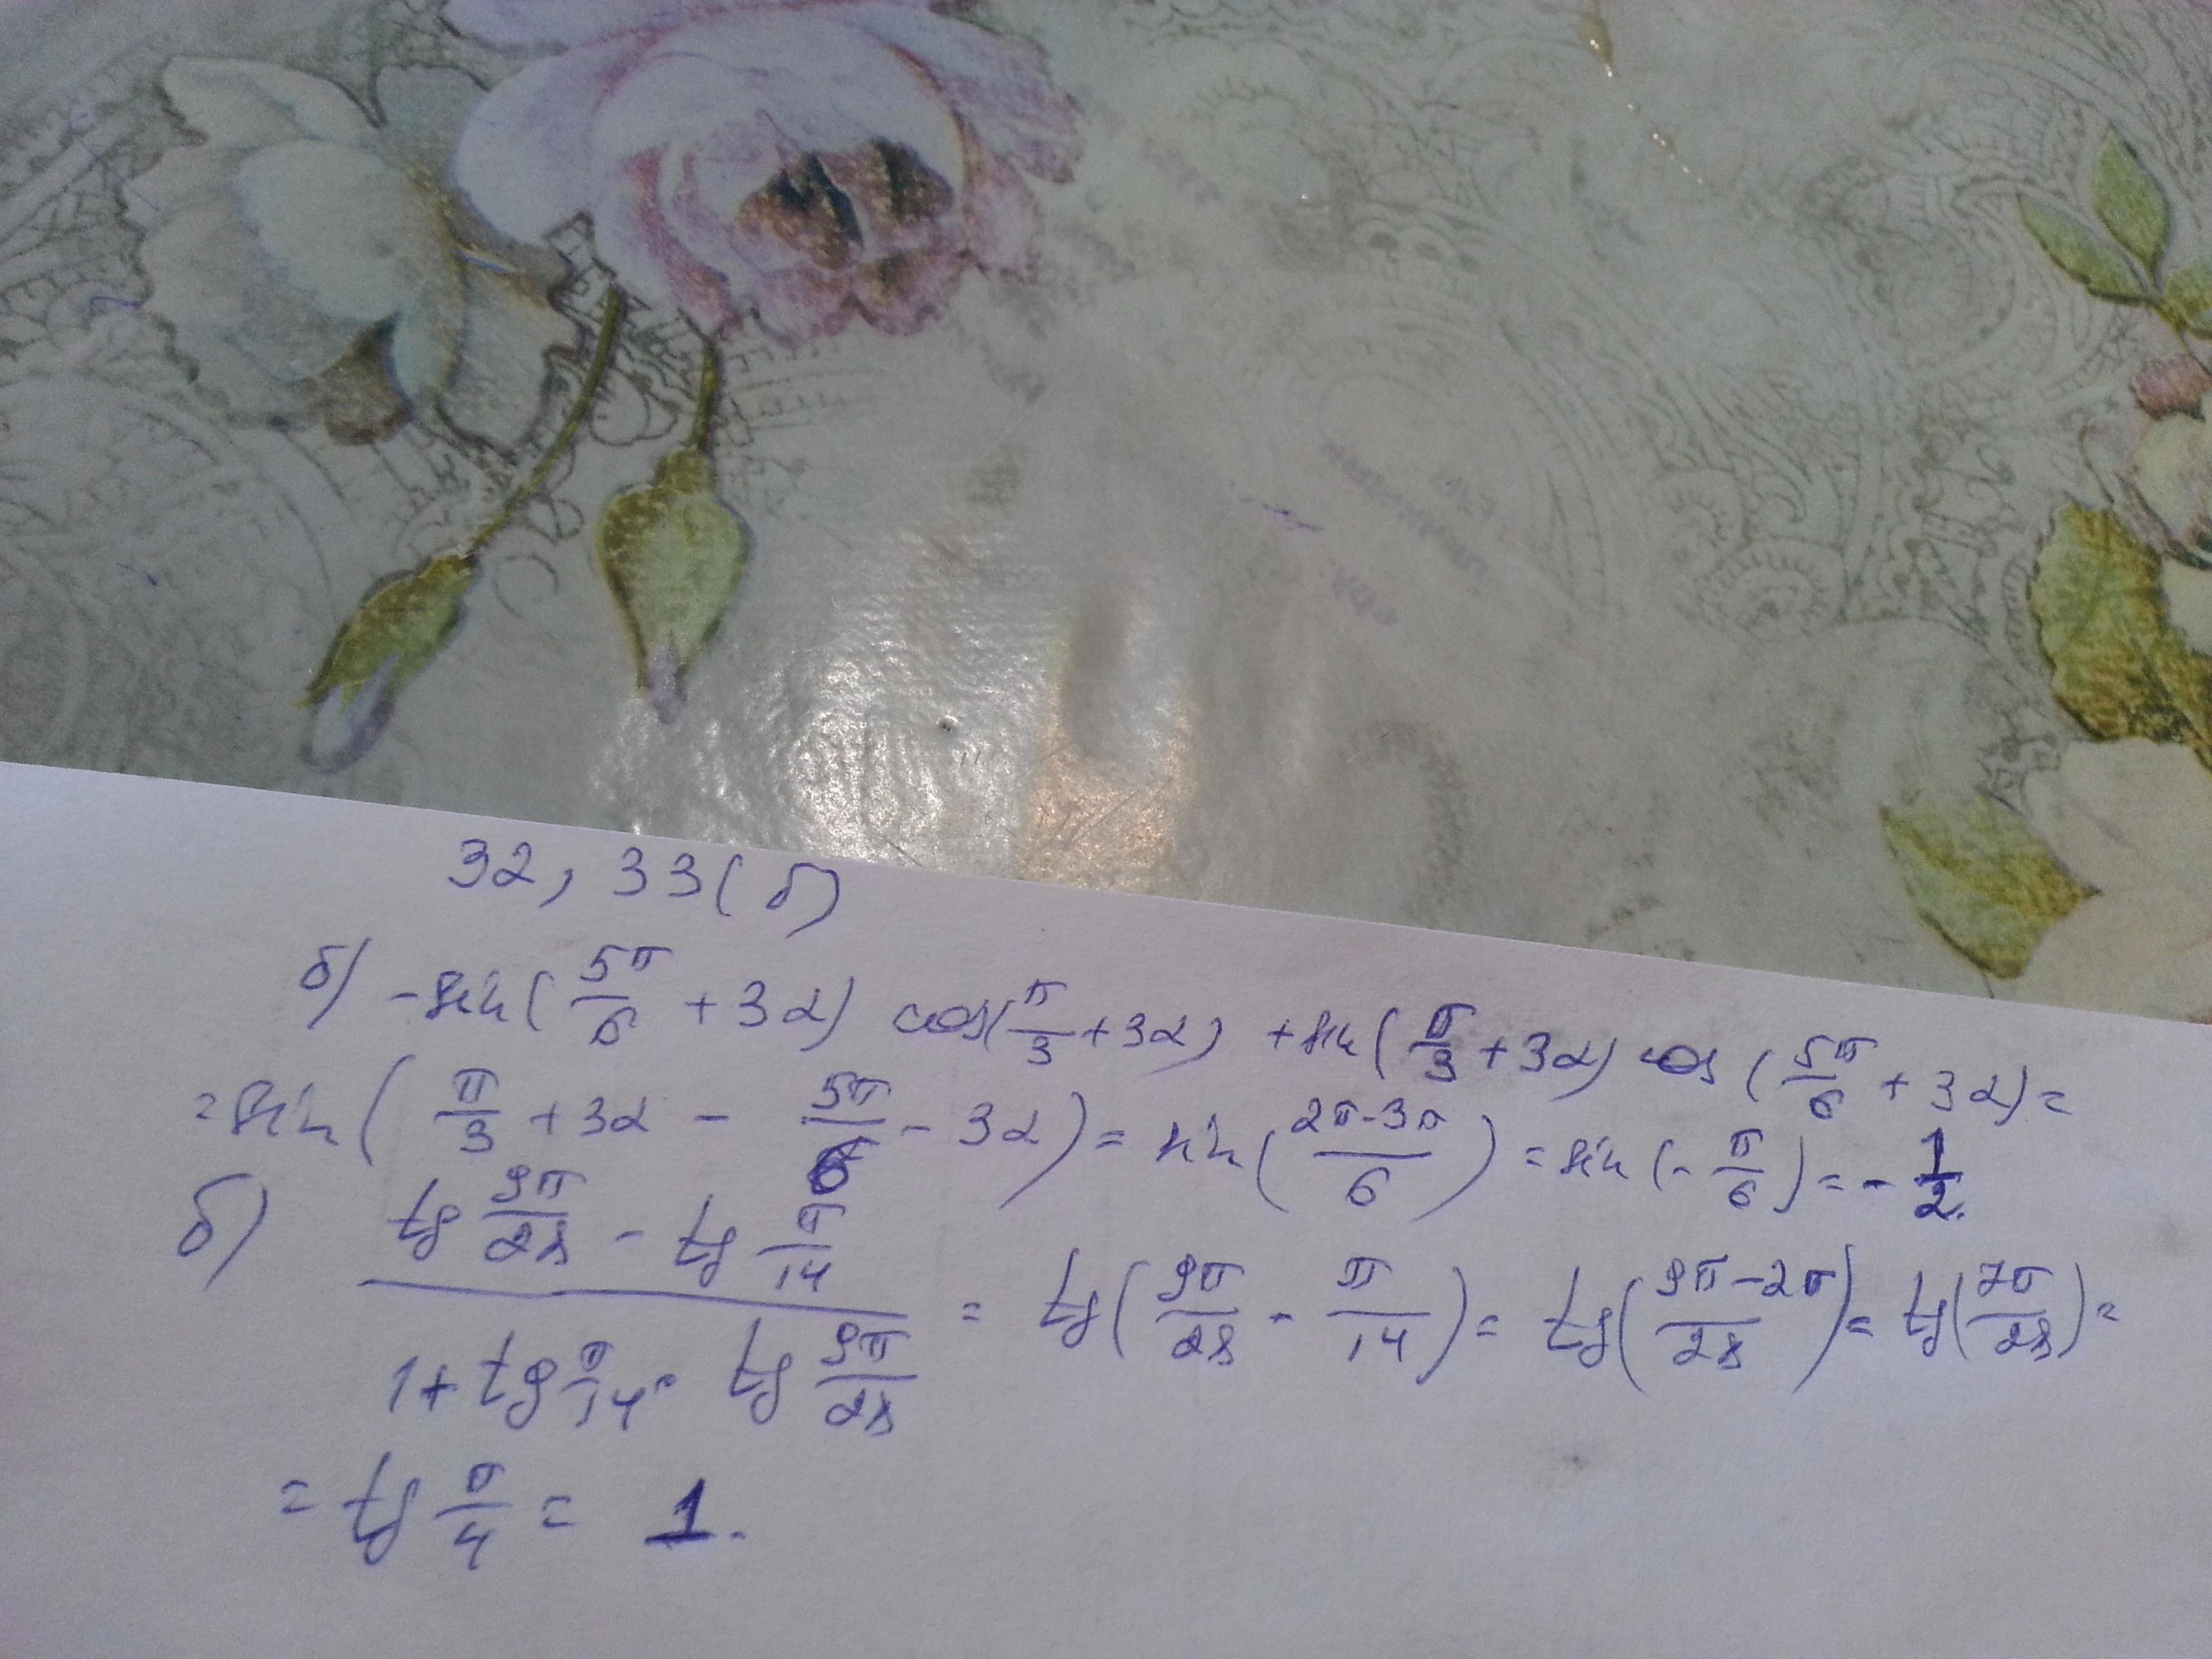 32, 33(б)
б) -sin(5π/6 + 3α) cos(π/3 + 3α) + sin(π/3 + 3α) cos(5π/6 + 3α) =
= sin(π/3 + 3α - 5π/6 - 3α) = sin(2π-3π/6) = sin(-π/6) = -1/2.
б) tg 9π/28 - tg π/14 / 1 + tg π/14 · tg 9π/28 = tg(9π/28 - π/14) = tg(9π-2π/28) = tg(7π/28) =
= tg π/4 = 1.